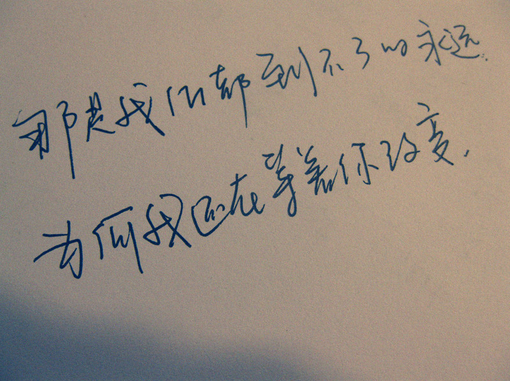 那是我们都到不了的永远.
为何我还在等着你改变.